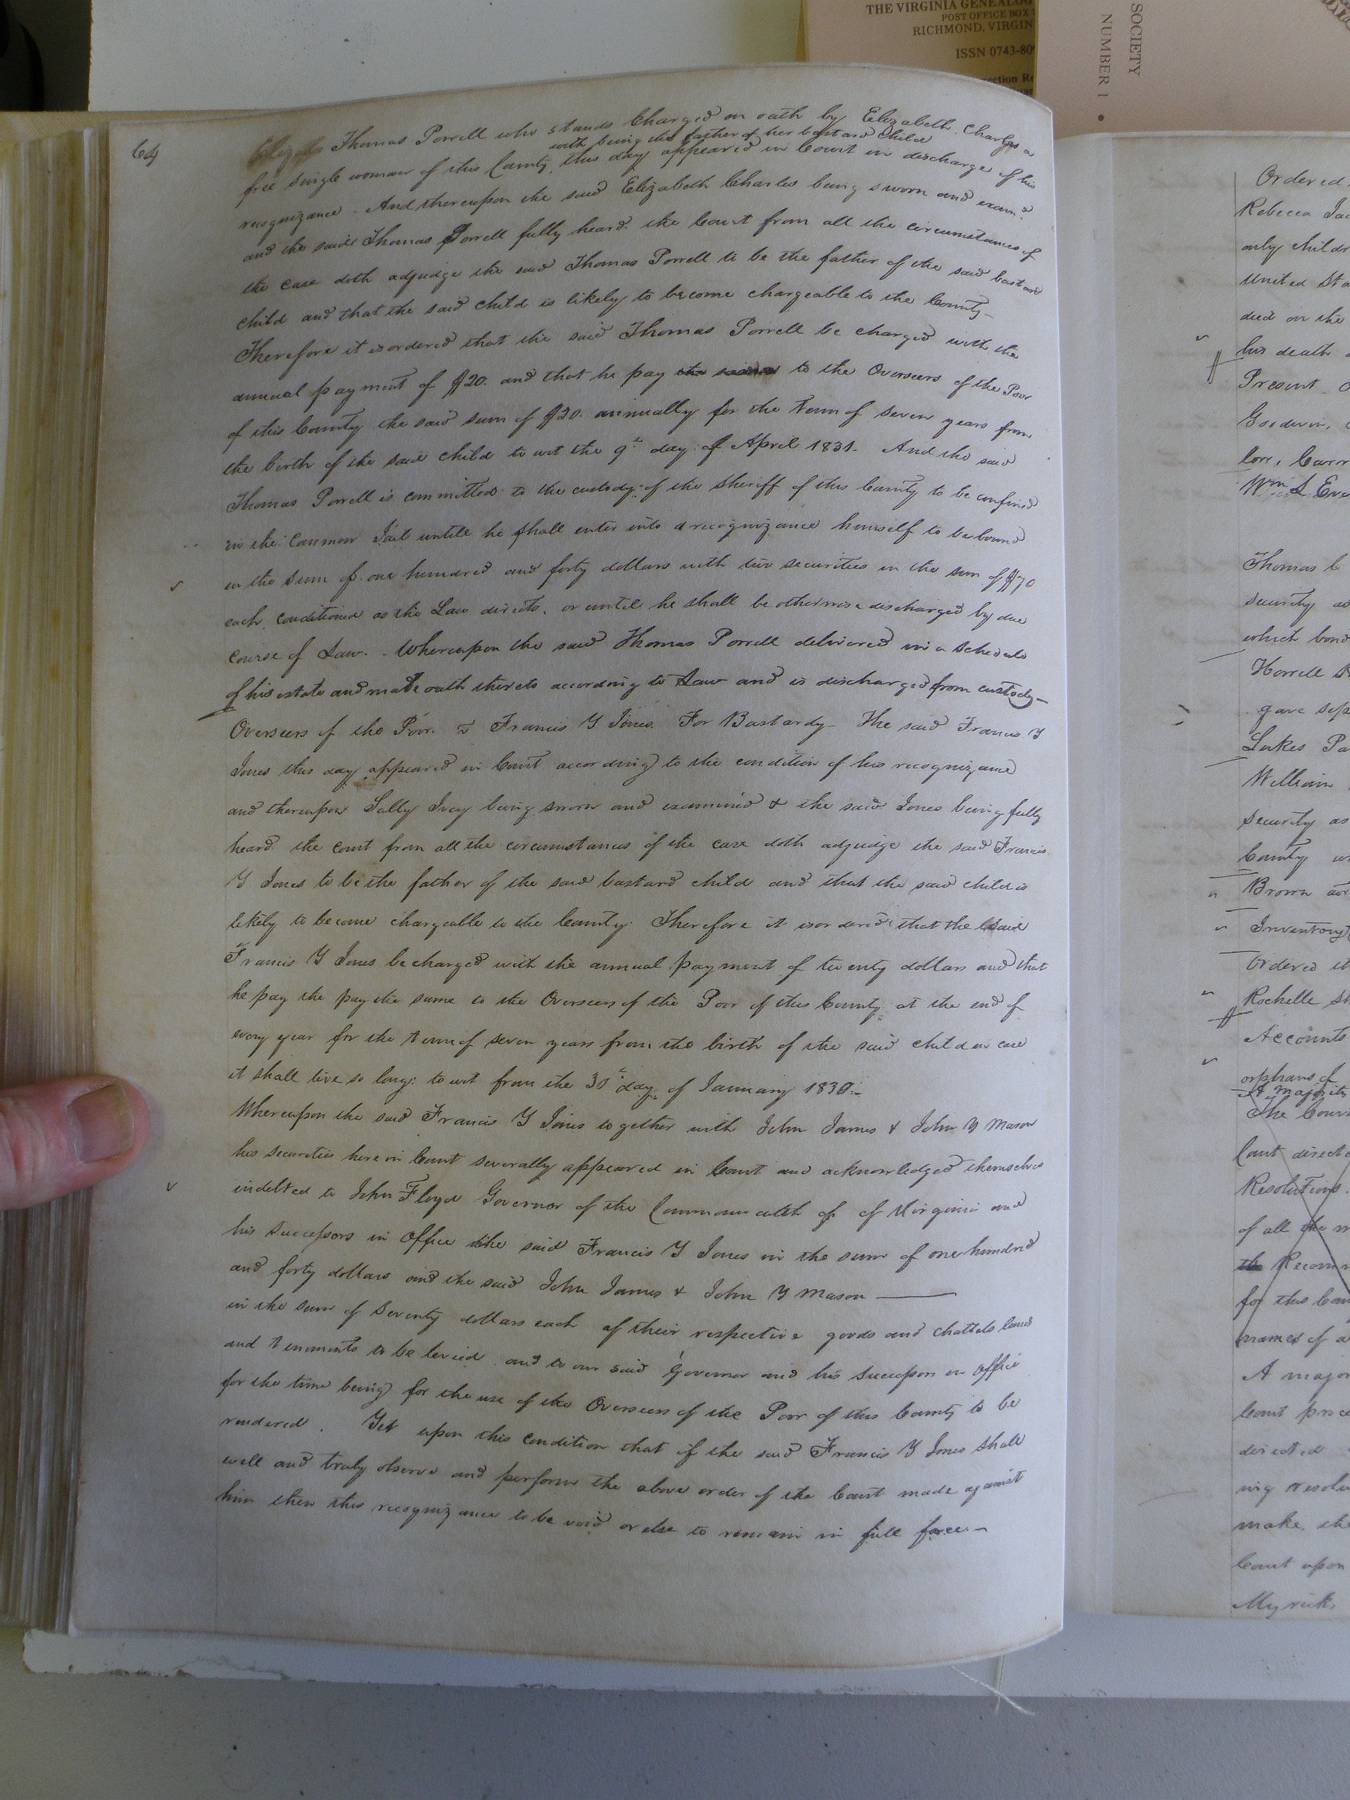 THE VIRGINIA GENEALOG
POST OFFICE BOX
RICHMOND, VIRGIN
ISSN 0743-809
ection Re
SOCIETY
NUMBER 1
64
Thomas Porrell who stands Charged on oath by Elizabeth Charles a
with being the father of her bastard child
free single woman of this County, this day appeared in Court in discharge of his
recognizance. And thereupon the said Elizabeth Charles being sworn and exam.d
and the said Thomas Porrell fully heard. the Court from all the circumstances of
the case doth adjudge the said Thomas Porrell to be the father of the said bastard
child and that the said child is likely to become chargeable to the County—
Therefore it is ordered that the said Thomas Porrell be charged with the
annual payment of $20. and that he pay to the Overseers of the Poor
of this County the said sum of $20. annually for the term of seven years from
the birth of the said child to wit the 9th day of April 1831. And the said
Thomas Porrell is committed to the custody of the Sheriff of this County to be confined
in the Common Jail untill he shall enter into a recognizance himself to be bound
in the sum of one hundred and forty dollars with two securities in the sum of $70
each conditioned as the Law directs, or until he shall be otherwise discharged by due
course of Law. Whereupon the said Thomas Porrell delivered in a schedule
of his estate and made oath thereto according to Law and is discharged from custody—
Overseers of the Poor. vs Francis Y Jones. For Bastardy— The said Francis Y
Jones this day appeared in Court according to the condition of his recognizance
and thereupon Sally Ivey being sworn and examined & the said Jones being fully
heard the court from all the circumstances of the case doth adjudge the said Francis
Y Jones to be the father of the said bastard child and that the said child is
likely to become chargeable to the County. Therefore it is ordered that the said
Francis Y Jones be charged with the annual payment of twenty dollars and that
he pay the pay the same to the Overseers of the Poor of this County at the end of
every year for the term of seven years from the birth of the said child in case
it shall live so long: to wit from the 30th day of January 1830.—
Whereupon the said Francis Y Jones together with John James & John Y Mason
his securities here in Court severally appeared in Court and acknowledged themselves
indebted to John Floyd Governor of the Commonwealth of of Virginia and
his successors in office the said Francis Y Jones in the sum of one hundred
and forty dollars and the said John James & John Y Mason —
in the sum of seventy dollars each of their respective goods and chattels lands
and tenements to be levied and to our said Governor and his successors in office
for the time being for the use of the Overseers of the Poor of this County to be
rendered. Yet upon this condition that if the said Francis Y Jones shall
well and truly observe and perform the above order of the Court made against
him then this recognizance to be void or else to remain in full force—
Ordered
Rebecca
only
United Sta
died on the
his death
Present
Goodwin,
Wm L
Thomas
security as
which bond
Horrell
gave
Lukes
William
security as
County
Brown
Inventory
Ordered
Rochelle
Accounts
orphans of
A majority
The Cour
Court
Resolutions.
of all the
Recomm
for this
names of
A major
Court
directed
resolu
make the
Court upon
Myrick,